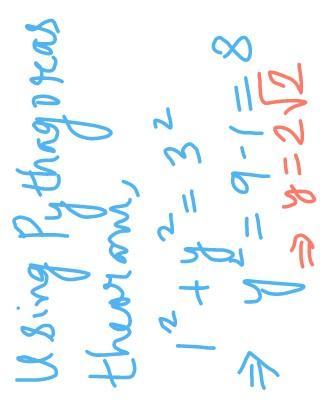 Using Pythagoreas
thearam,
1² + y² = 3²
⇒ y² = 9 - 1 = 8
⇒ y = 2√2